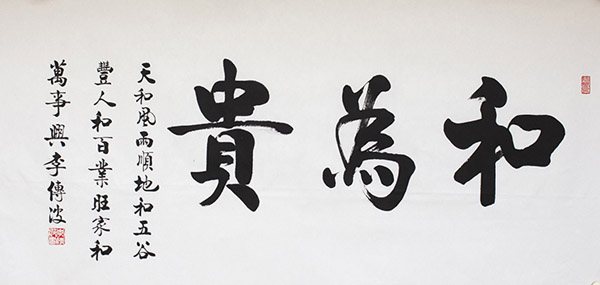 和為貴
天和風雨順地和五谷
豐人和百業旺家和
萬事興李傳波